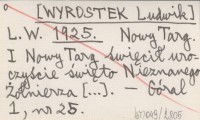 [WYROSTEK Ludwik]
L.W. 1925. Nowy Targ.
I Nowy Targ święcił uro-
czyście święto Nieznanego
Żołnierza [...]. — Góral
1, nr 25.